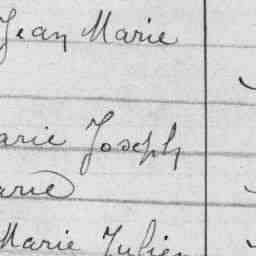 Jean Marie
arie Joseph
arie
Marie Julien